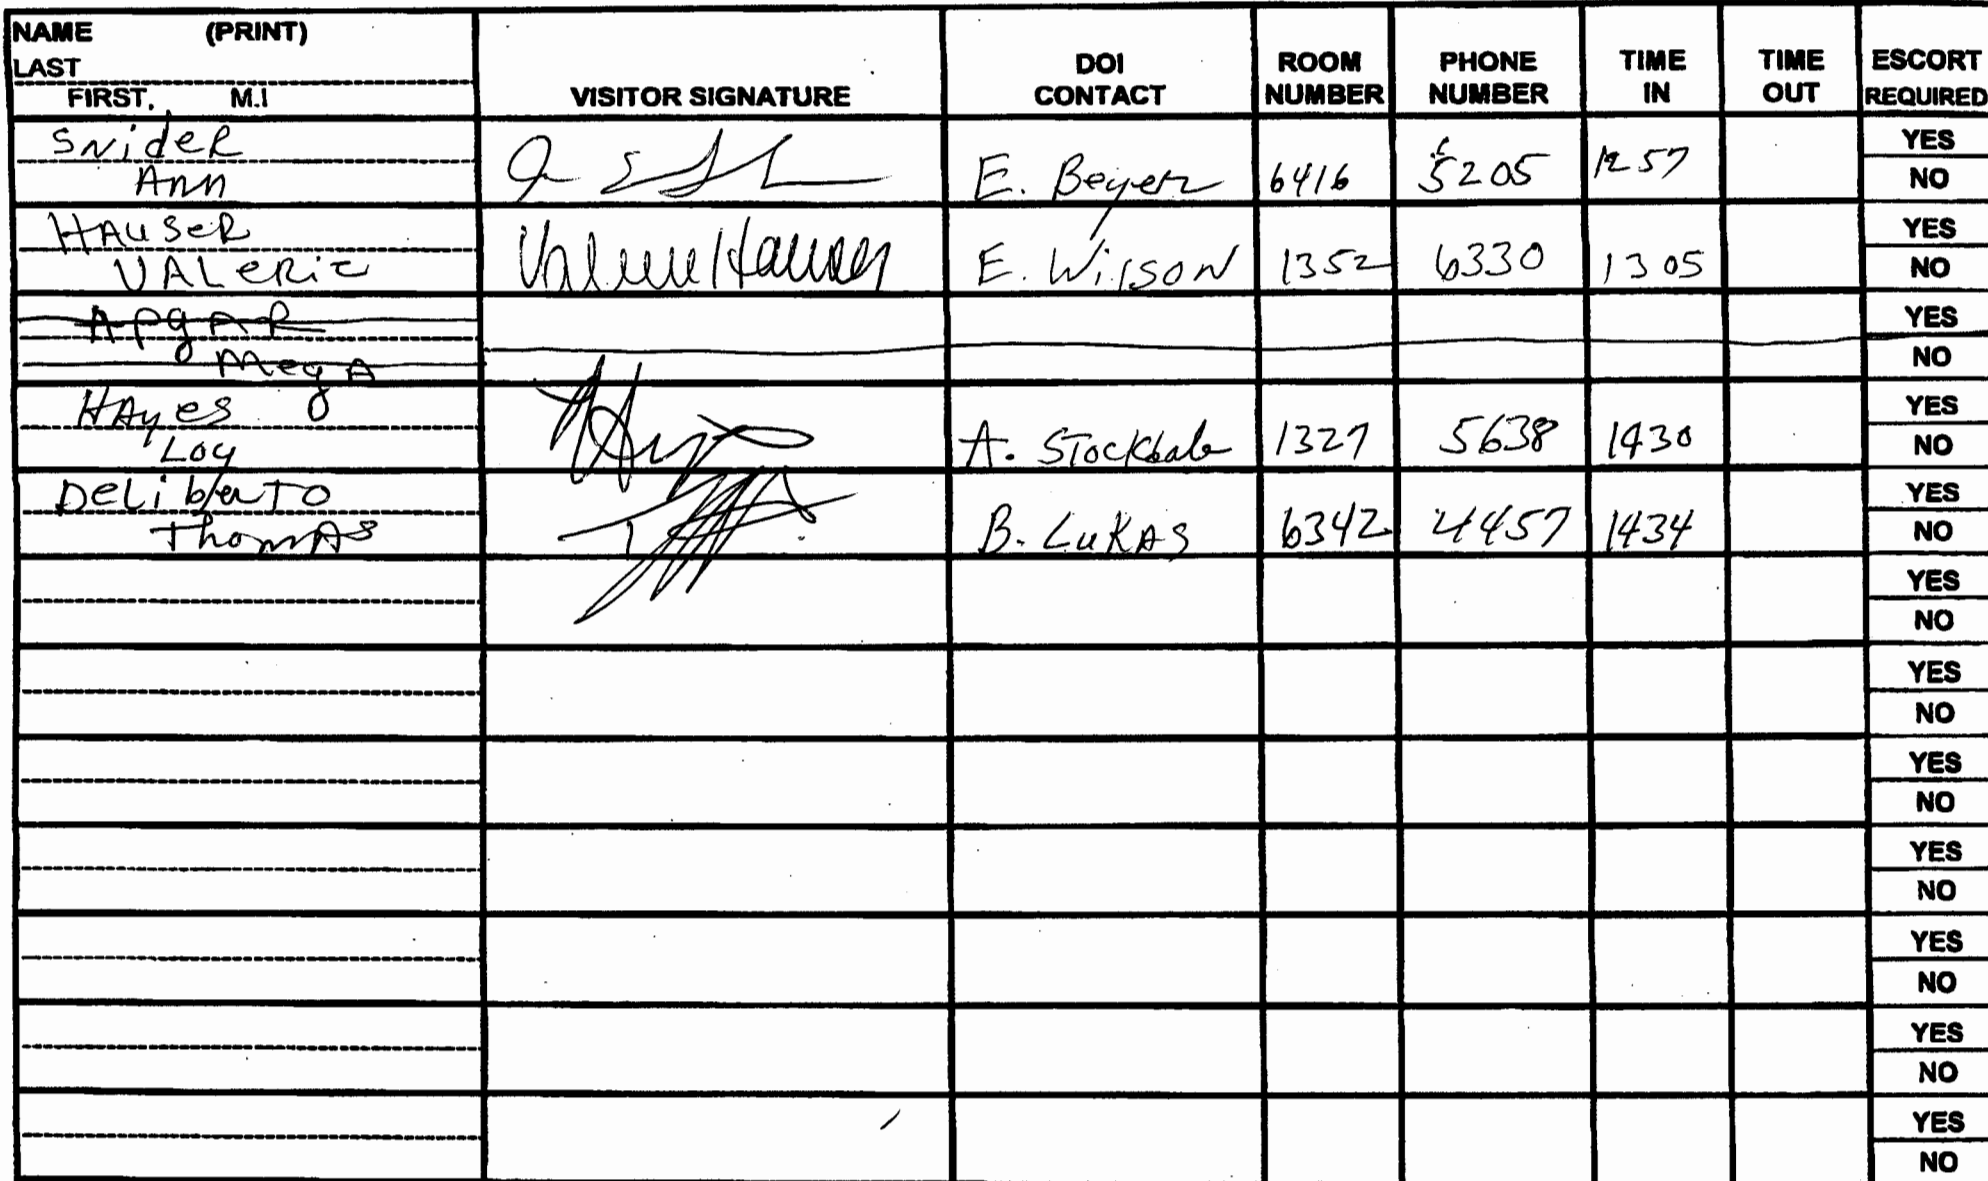 NAME (PRINT)
LAST
FIRST, M.I
VISITOR SIGNATURE
DOI CONTACT
ROOM NUMBER
PHONE NUMBER
TIME IN
TIME OUT
ESCORT REQUIRED
Snider
Ann
E. Beyer 6416 5205 1257
YES
NO
HAuseR
VALeRie
Valerie Hauser E. Wilson 1352 6330 1305
YES
NO
ApgAR
Meg A
YES
NO
HAyes
Loy
A. Stockdale 1327 5638 1430
YES
NO
DeLiberTo
ThomAs
B. LuKAs 6342 4457 1434
YES
NO
YES
NO
YES
NO
YES
NO
YES
NO
YES
NO
YES
NO
YES
NO